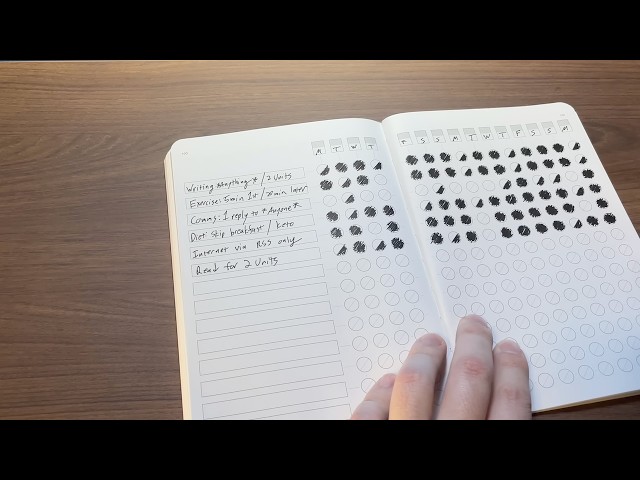 M T W T F S S M T W T F S S M
Writing *Anything* / 2 Units
Exercise: 5min 1st / 20min later
Comms: 1 reply to *Anyone*
Diet: Skip breakfast / Keto
Internet via RSS only
Read for 2 Units